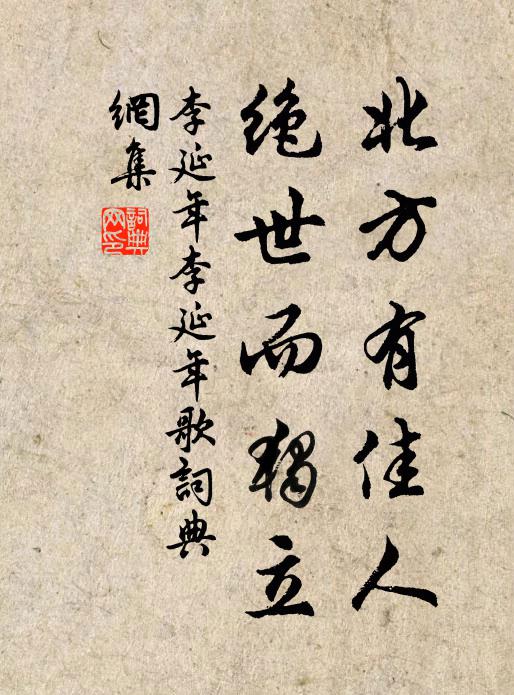 北方有佳人
絶世而獨立
李延年李延年歌詞典
網集
詞典网印